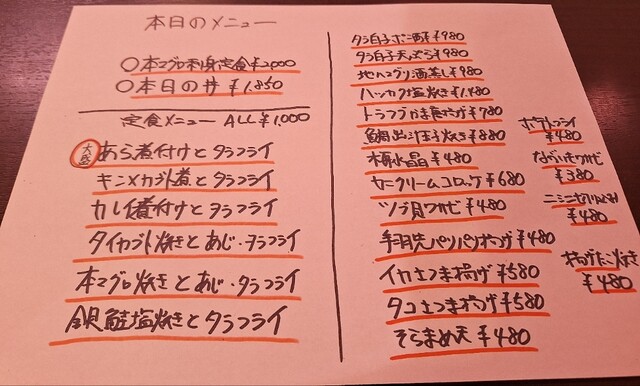 本日のメニュー
○本マグロ刺身定食¥2,000
○本日の丼 ¥1,850
定食メニュー ALL ¥1,000
大盛 あら煮付けとタラフライ
キンメカブト煮とタラフライ
カレイ煮付けとタラフライ
タイカブト焼きとあじ・タラフライ
本マグロ焼きとあじ・タラフライ
銀鮭塩焼きとタラフライ
タラ白子ポン酢¥980
タラ白子天ぷら¥980
地ハマグリ酒蒸し¥980
ハッカク塩焼き¥1,480
トラフグから揚げ¥780
鯛出汁玉子焼き¥880
梅水晶¥480
カニクリームコロッケ¥680
ツブ貝ワサビ¥480
手羽先パリパリ揚げ¥480
イカさつま揚げ¥580
タコさつま揚げ¥580
そらまめ天¥480
ポテトフライ
¥480
¥380
¥480
揚げたこ焼き
¥480